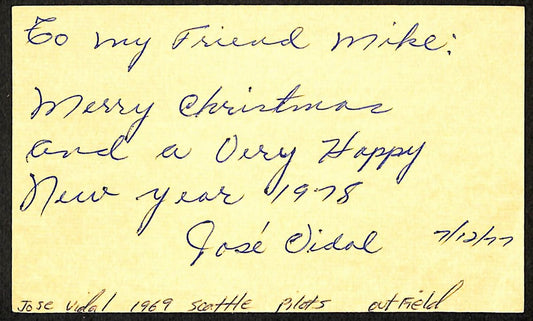 To my Friend Mike:
Merry Christmas
and a Very Happy
New year 1978
José Vidal 7/12/77
Jose Vidal 1969 Seattle Pilots outfield